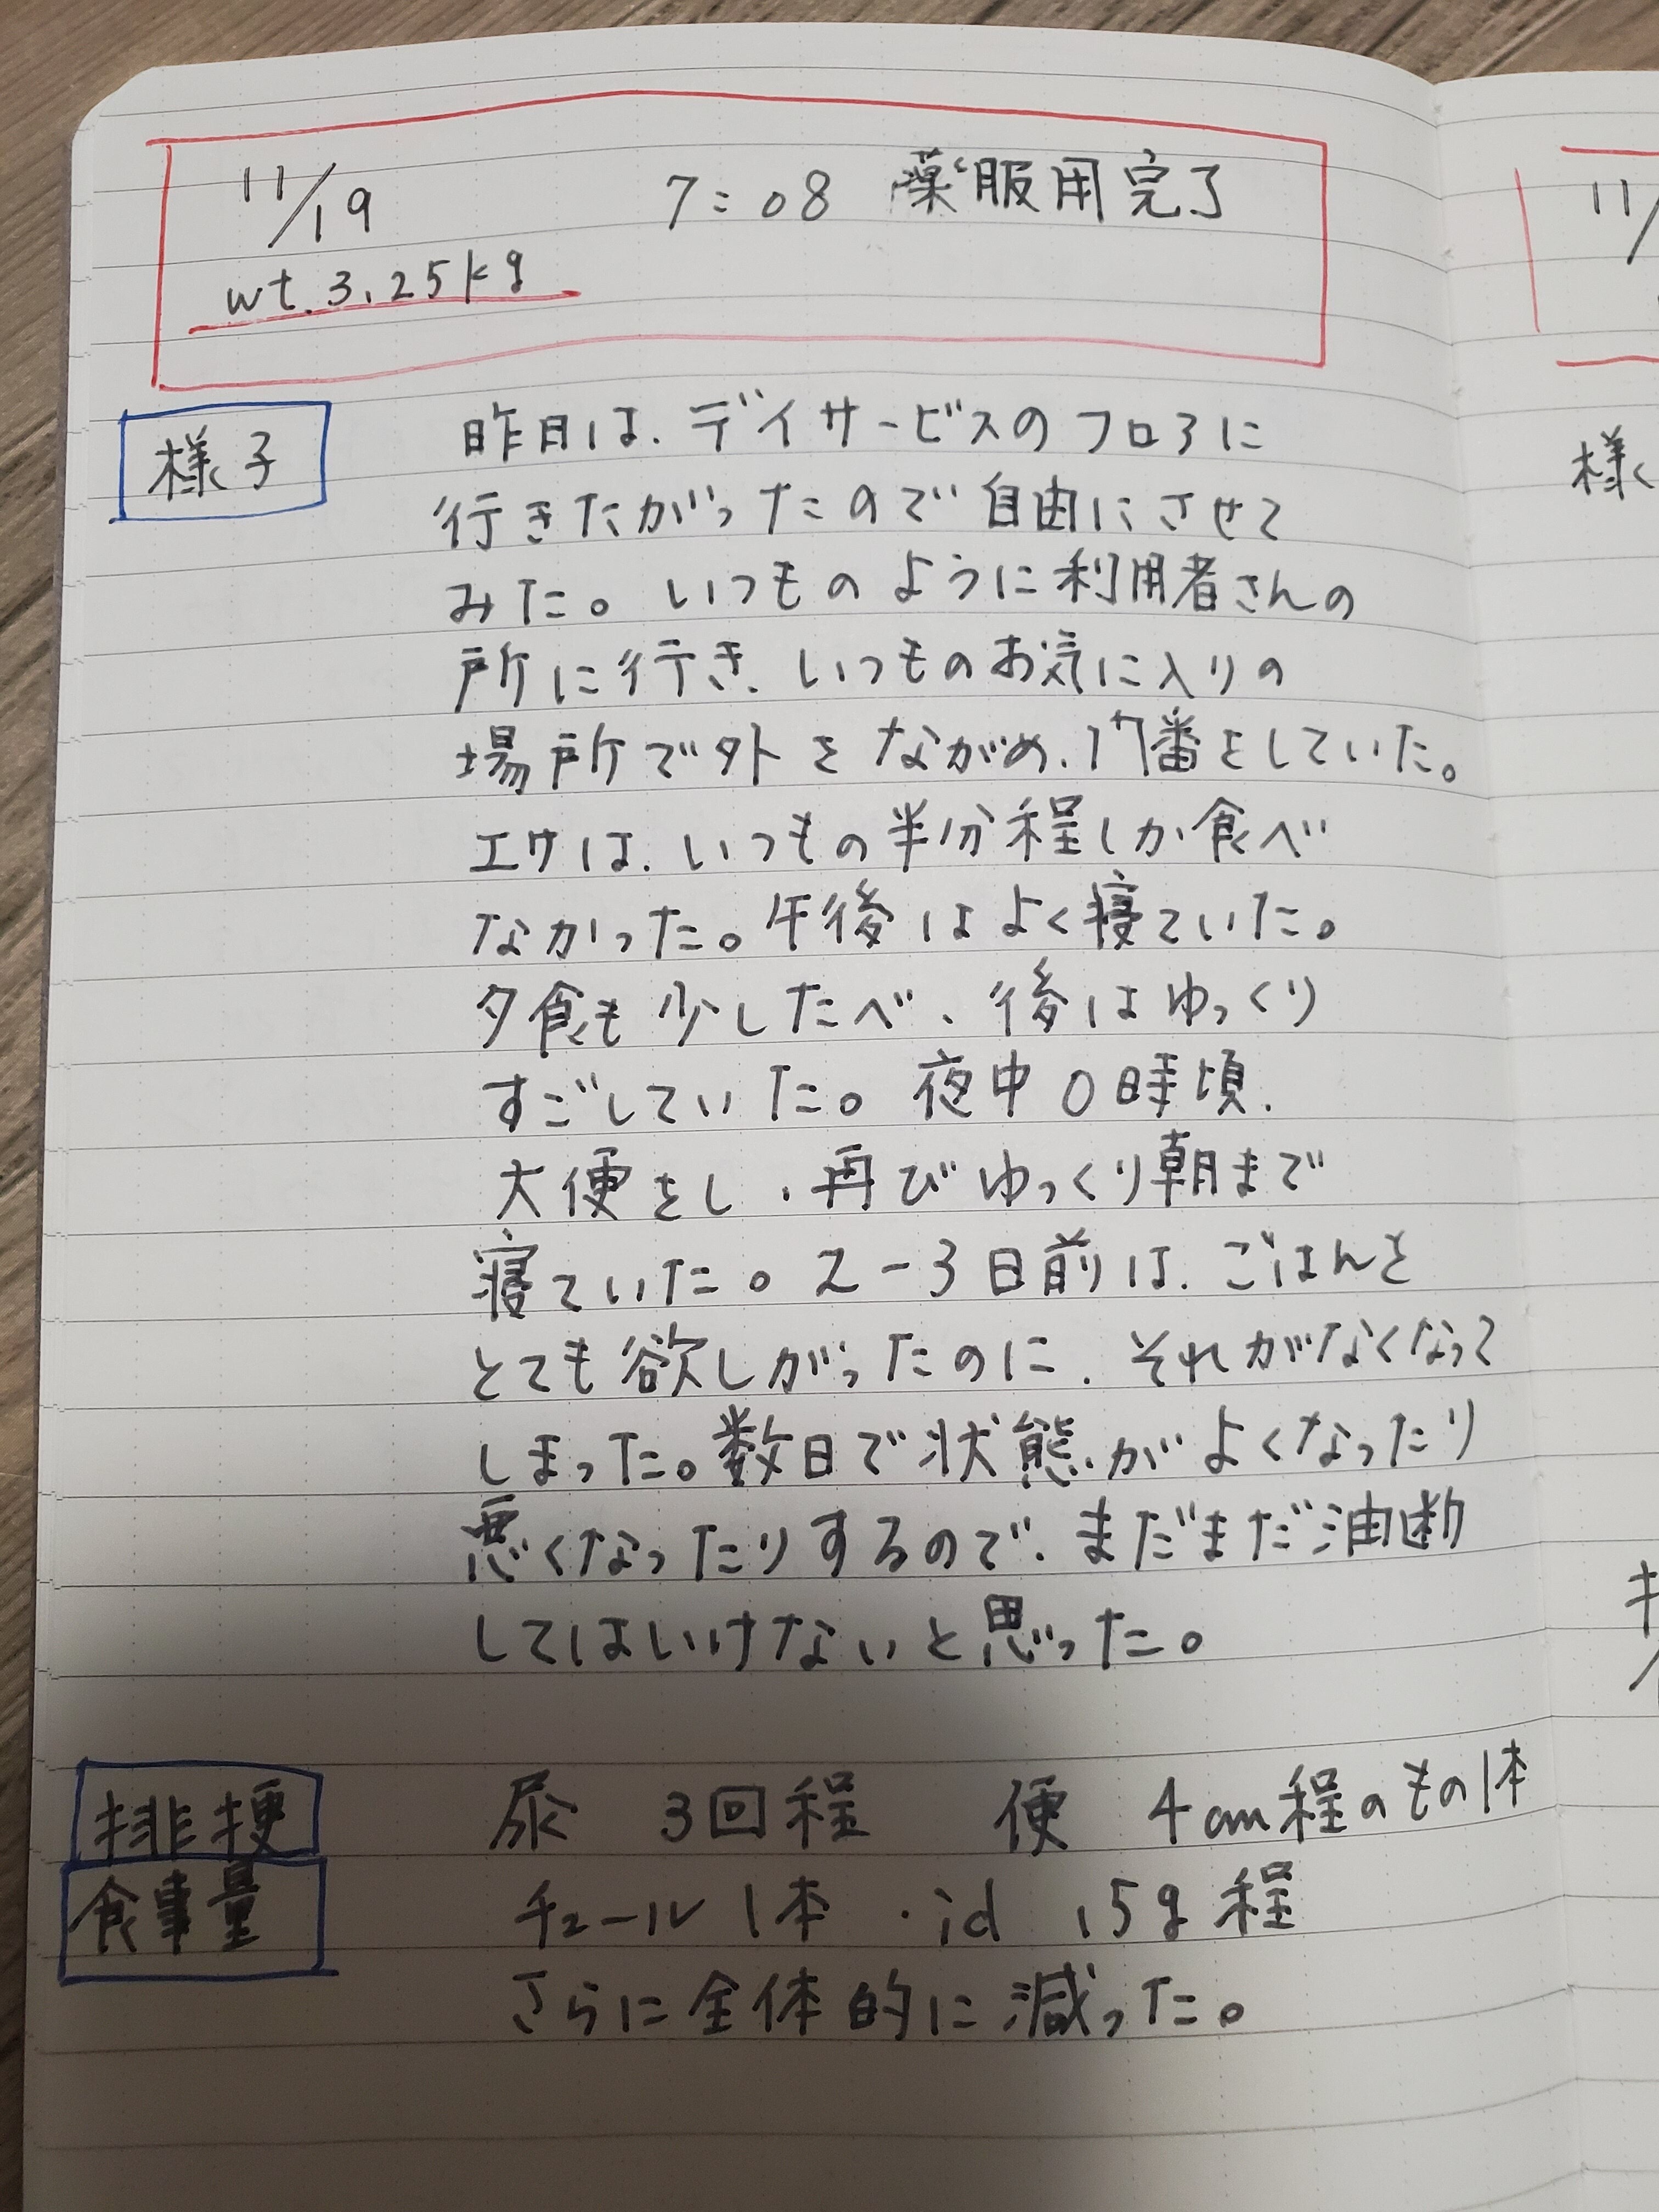 11/19 7:08 薬服用完了
wt.3.25kg
様子
昨日は、デイサービスのフロアに
行きたがったので自由にさせて
みた。いつものように利用者さんの
所に行き、いつものお気に入りの
場所で外をながめ、門番をしていた。
エサは、いつもの半分程しか食べ
なかった。午後はよく寝ていた。
夕食も少したべ、後はゆっくり
すごしていた。夜中0時頃、
大便をし、再びゆっくり朝まで
寝ていた。2-3日前は、ごはんを
とても欲しがったのに、それがなくなって
しまった。数日で状態がよくなったり
悪くなったりするので、まだまだ油断
してはいけないと思った。
排梗 尿 3回程 便 4cm程のもの1本
食事量 チュール1本・id 15g程
さらに全体的に減った。
11/
様